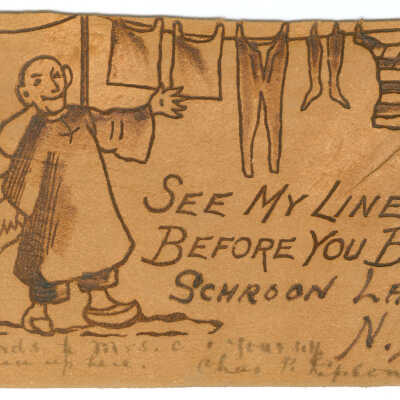 SEE MY LINE
BEFORE YOU B
SCHROON LA
N.
Mrs. C. & Yourself
up here. Chas P.